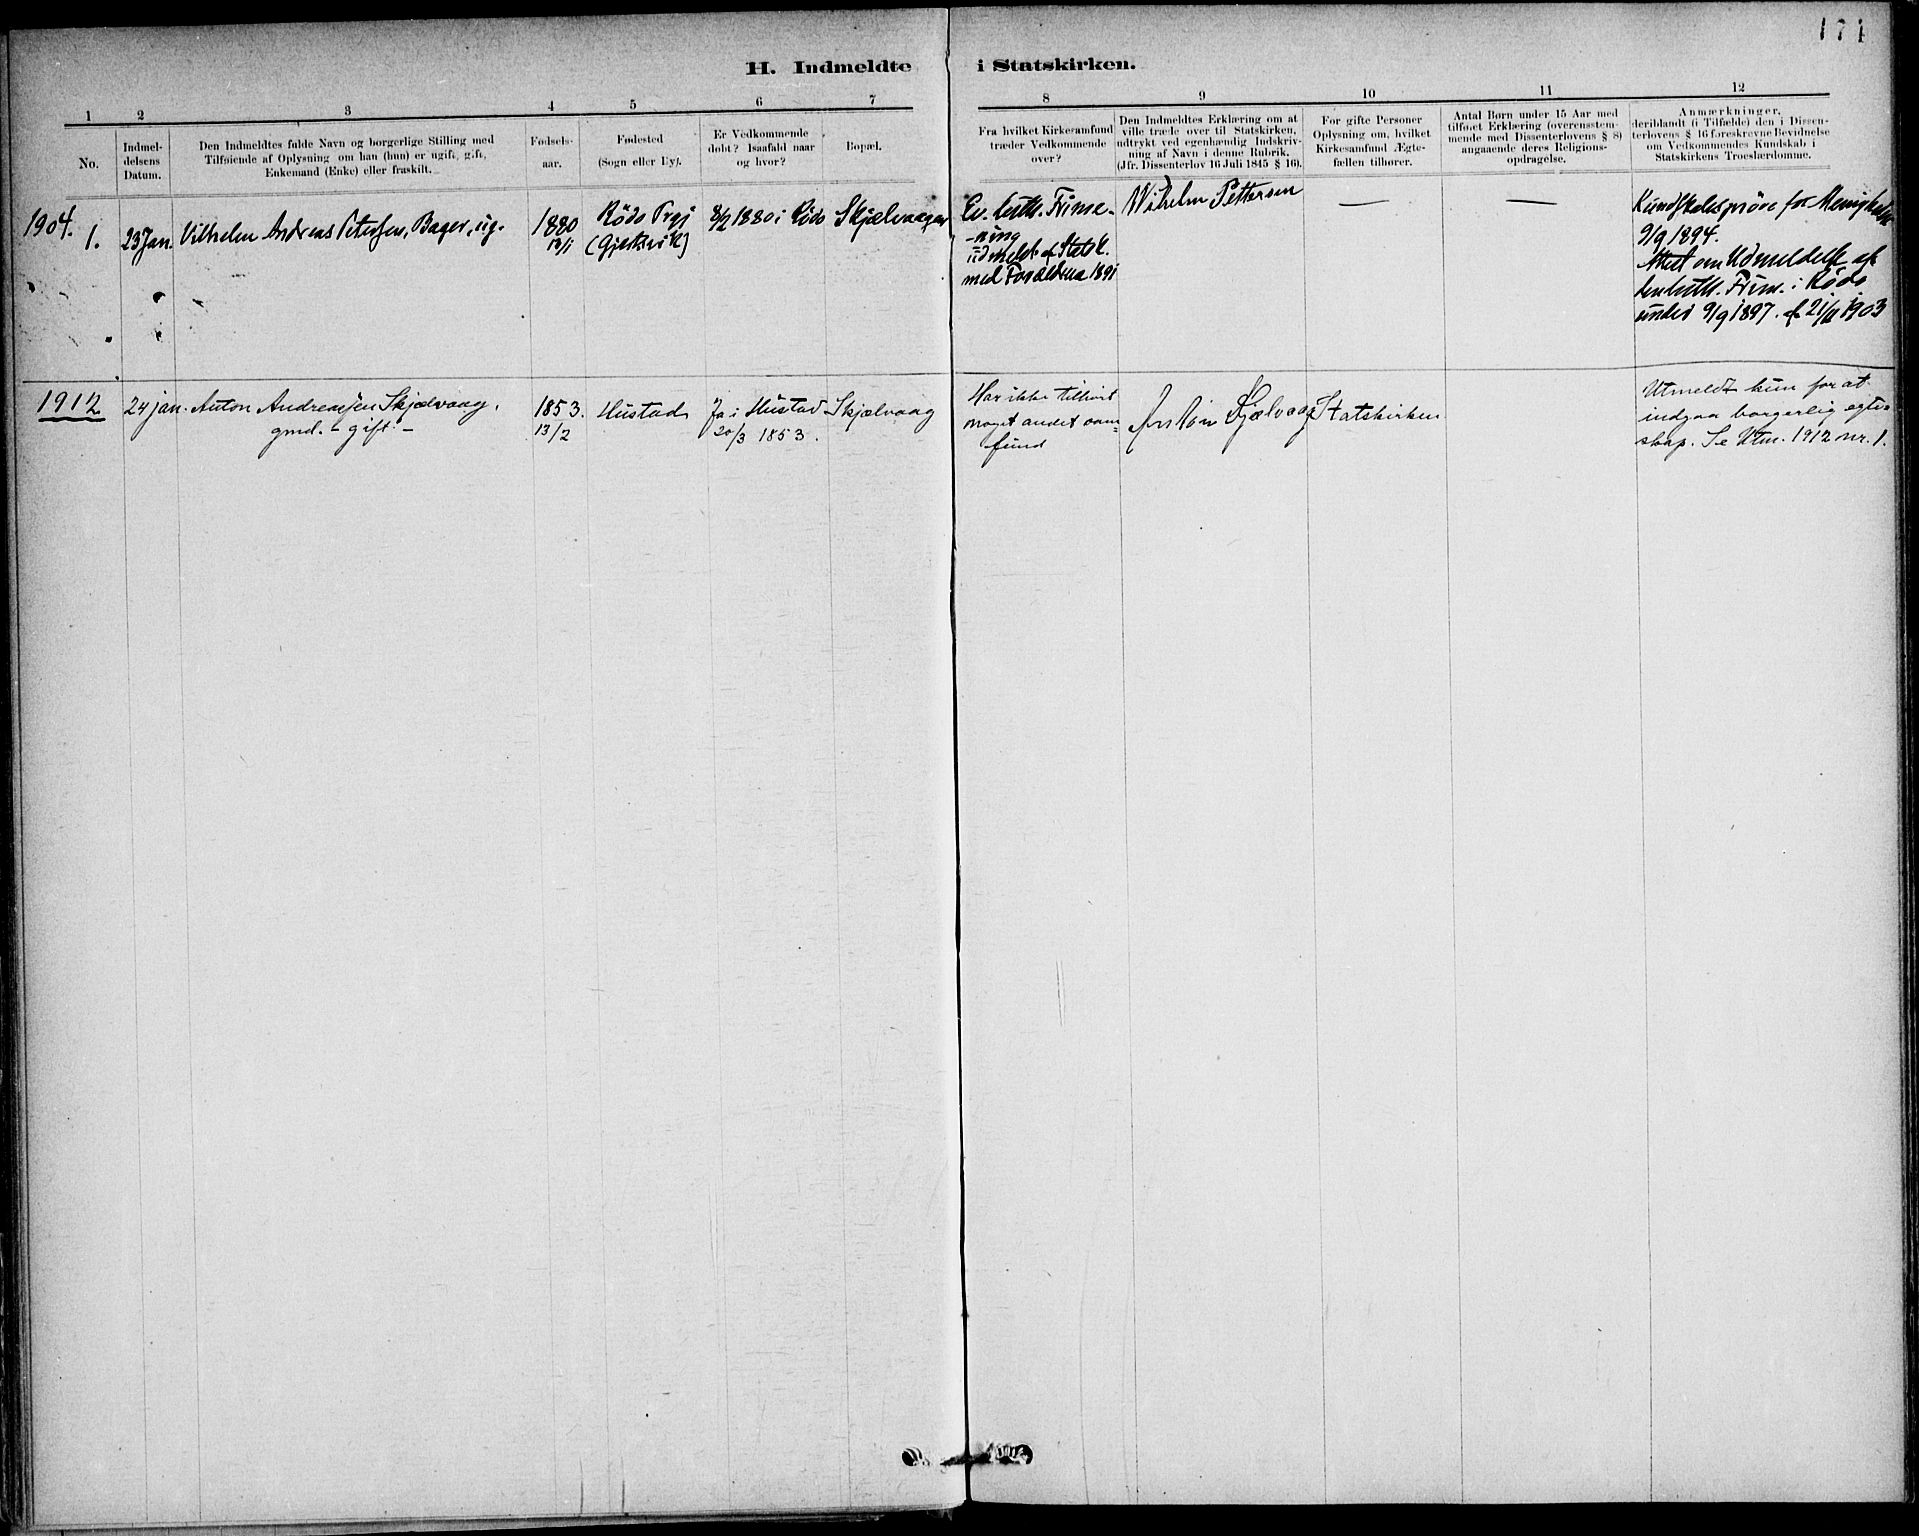 171
H. Indmeldte i Statskirken.
1 2 3 4 5 6 7 8 9 10 11 12
No.
Indmel-
delsens
Datum.
Den Indmeldtes fulde Navn og borgerlige Stilling med
Tilføiende af Oplysning om han (hun) er ugift, gift,
Enkemand (Enke) eller fraskilt.
Fødsels-
aar.
Fødested
(Sogn eller By).
Er Vedkommende
døbt? Isaafald naar
og hvor?
Bopæl.
Fra hvilket Kirkesamfund
træder Vedkommende
over?
Den Indmeldtes Erklæring om at
ville træde over til Statskirken,
udtrykt ved egenhændig Indskriv-
ning af Navn i denne Rubrik.
(Jfr. Dissenterlov 16 Juli 1845 § 16).
For gifte Personer
Oplysning om, hvilket
Kirkesamfund Ægte-
fællen tilhører.
Antal Børn under 15 Aar med
tilføiet Erklæring (overensstem-
mende med Dissenterlovens § 8)
angaaende deres Religions-
opdragelse.
Anmærkninger,
deriblandt (i Tilfælde) den i Dissen-
terlovens § 16 foreskrevne Bevidnelse
om Vedkommendes Kundskab i
Statskirkens Troeslærdomme.
1904.
1.
23 Jan.
Vilhelm Andreas Petersen, Bager, ug.
1880
13/1
Rødø Prgj
(Gjerksvik)
8/2 1880 i Rødø
Skjælvaagen
Ev. luth. Frime-
-nig
udmeldt af Statsk.
med Forældrene 1891
Wilhelm Pettersen
—
—
Kundskabsprøve for Menigheden
9/9 1894.
Attest om Udmeldelse af
den luth. Frim. i Rødø
under 9/9 1897. af 21/11 1903
1912
24 jan.
Anton Andreassen Skjælvaag,
gmd. - gift. -
1853.
13/2
Hustad
Ja i Hustad
20/3 1853.
Skjælvaag
Har ikke tilhørt
noget andet sam=
fund
Anton Sjælvaag
Statskirken
Utmeldt kun for at
indgaa borgerlig egte-
skap. Se Utm. 1912 nr. 1.